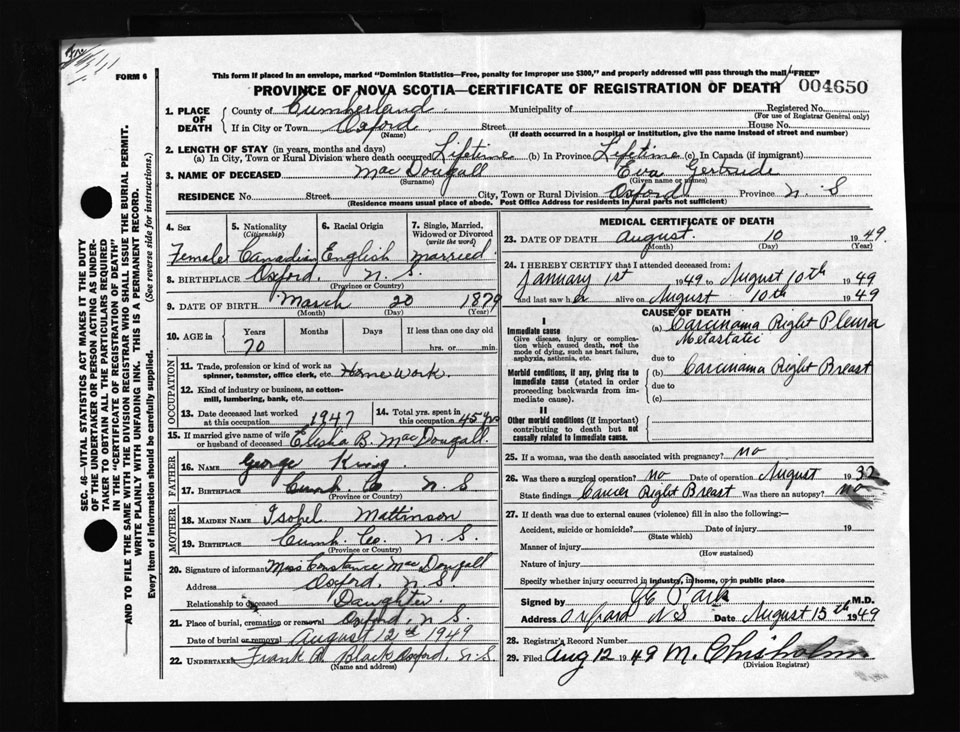 FORM 6
This form if placed in an envelope, marked "Dominion Statistics—Free, penalty for improper use $300," and properly addressed will pass through the mail "FREE"
PROVINCE OF NOVA SCOTIA—CERTIFICATE OF REGISTRATION OF DEATH 004650
1. PLACE OF DEATH County of Cumberland Municipality of Registered No.
(For use of Registrar General only)
If in City or Town Oxford Street House No.
(Name) (If death occurred in a hospital or institution, give the name instead of street and number)
2. LENGTH OF STAY (in years, months and days)
(a) In City, Town or Rural Division where death occurred Lifetime (b) In Province Lifetime (c) In Canada (if immigrant)
3. NAME OF DECEASED Mac Dougall Eva Gertrude
(Surname) (Given name or names)
RESIDENCE No. Street City, Town or Rural Division Oxford Province N. S
(Residence means usual place of abode. Post Office Address for residents in rural parts not sufficient)
4. Sex 5. Nationality (Citizenship) 6. Racial Origin 7. Single, Married, Widowed or Divorced (write the word)
Female Canadian English Married
8. BIRTHPLACE Oxford N. S.
(Province or Country)
9. DATE OF BIRTH March 20 1879
(Month) (Day) (Year)
10. AGE in Years Months Days If less than one day old
70 hrs. or min.
OCCUPATION
11. Trade, profession or kind of work as spinner, teamster, office clerk, etc. Home Work.
12. Kind of industry or business, as cotton-mill, lumbering, bank, etc.
13. Date deceased last worked at this occupation 1947 14. Total yrs. spent in this occupation 45 yrs
15. If married give name of wife or husband of deceased Elisha B. Mac Dougall.
FATHER
16. NAME George King
17. BIRTHPLACE Cumb. Co. N S
(Province or Country)
MOTHER
18. MAIDEN NAME Isobel Mattinson
19. BIRTHPLACE Cumb. Co. N. S.
(Province or Country)
20. Signature of informant Miss Constance Mac Dougall
Address Oxford, N. S.
Relationship to deceased Daughter
21. Place of burial, cremation or removal Oxford, N. S
Date of burial or removal August 12th 1949
22. Undertaker Frank B. Black Oxford, N. S
(Name and address)
MEDICAL CERTIFICATE OF DEATH
23. DATE OF DEATH August 10 1949.
(Month) (Day) (Year)
24. I HEREBY CERTIFY that I attended deceased from:
January 1st 1949 to August 10th 1949
and last saw her alive on August 10th 1949
CAUSE OF DEATH
I
Immediate cause
Give disease, injury or complication which caused death, not the mode of dying, such as heart failure, asphyxia, asthenia, etc.
(a) Carcinama Right Pleura
Metastatic
due to
Morbid conditions, if any, giving rise to immediate cause (stated in order proceeding backwards from immediate cause).
(b) Carcinama Right Breast
due to
(c)
II
Other morbid conditions (if important) contributing to death but not causally related to immediate cause.
25. If a woman, was the death associated with pregnancy? no
26. Was there a surgical operation? no Date of operation August 1932
State findings Cancer Right Breast Was there an autopsy? no
27. If death was due to external causes (violence) fill in also the following:—
Accident, suicide or homicide? Date of injury 19
(State which)
Manner of injury
(How sustained)
Nature of injury
Specify whether injury occurred in industry, in home, or in public place
Signed by M.D.
Address Oxford N S Date August 15th 1949
28. Registrar's Record Number
29. Filed Aug 12 1949 M. Chisholm
(Division Registrar)
SEC. 46—VITAL STATISTICS ACT MAKES IT THE DUTY
OF THE UNDERTAKER OR PERSON ACTING AS UNDER-
TAKER TO OBTAIN ALL THE PARTICULARS REQUIRED
IN THE "CERTIFICATE OF REGISTRATION OF DEATH"
AND TO FILE THE SAME WITH THE DIVISION REGISTRAR WHO SHALL ISSUE THE BURIAL PERMIT.
WRITE PLAINLY WITH UNFADING INK. THIS IS A PERMANENT RECORD.
Every item of information should be carefully supplied. (See reverse side for instructions.)